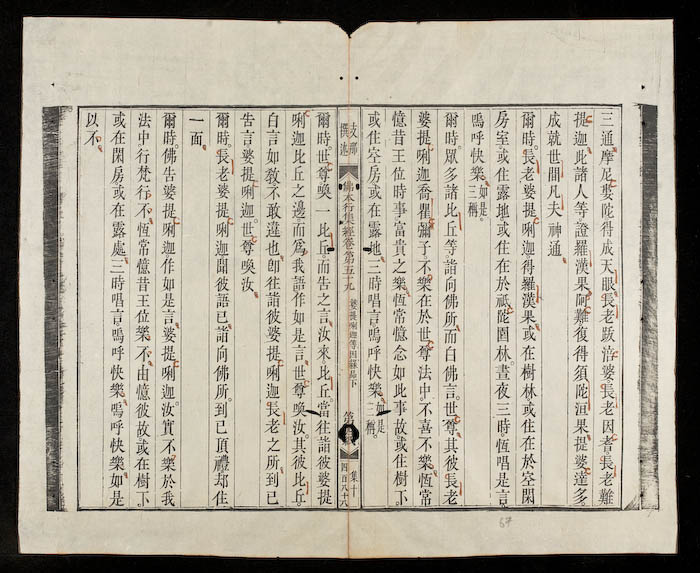 三通摩尼婁陀得成天眼長老跋浯婆長老因耆長老難
提迦此諸人等證羅漢果阿難復得須陀洹果提婆達多
成就世間凡夫神通
爾時長老婆提唎迦得羅漢果或在樹林或住在於空閑
房室或住露地或住在於祇陀園林晝夜三時恆唱是言
嗚呼快樂如是三稱
爾時眾多諸比丘等詣向佛所而白佛言世尊其彼長老
婆提唎迦喬瞿彌子不樂在於世尊法中不喜不樂恆常
憶昔王位時事富貴之樂恆常憶念如此事故或住樹下
或住空房或在露地三時唱言嗚呼快樂如是三稱
支那撰述
佛本行集經卷第五十九 婆提唎迦等因緣品下 第
集十
四百八十八
爾時世尊喚一比丘而告之言汝來比丘當往詣彼婆提
唎迦比丘之邊而爲我語作如是言世尊喚汝其彼比丘
白言如教不敢違也卽往詣彼婆提唎迦長老之所到已
告言婆提唎迦世尊喚汝
爾時長老婆提唎迦聞彼語已詣向佛所到已頂禮却住
一面
爾時佛告婆提唎迦作如是言婆提唎迦汝實不樂於我
法中行梵行不恆常憶昔王位樂不由憶彼故或在樹下
或在閑房或在露處三時唱言嗚呼快樂嗚呼快樂如是
以不
67